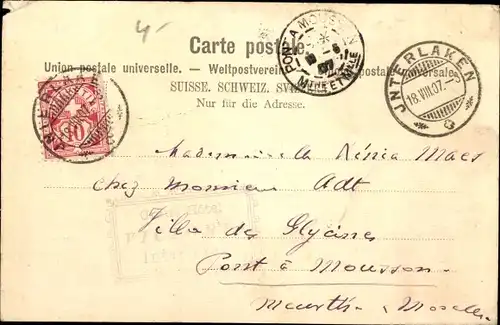 4-
Carte postale.
Union postale universelle. — Weltpostverein postale universale
SUISSE. SCHWEIZ.
Nur für die Adresse.
PONT-A-MOUSSON
MTHE ET MLLE
JNTERLAKEN
18.VIII.07.
10
Mademoiselle Xénia Maes
chez Monsieur Adt
Villa des Glycines
Pont à Mousson
Meurthe Moselle